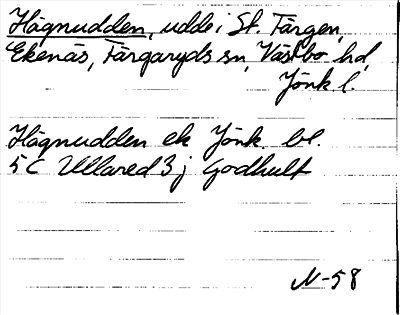 Hägnudden, udde i St. Färgen,
Ekenäs, Färgaryds sn, Västbo hd,
Jönk l.
Hägnudden ek Jönk. bl.
5C Ullared 3j Godhult
N-58